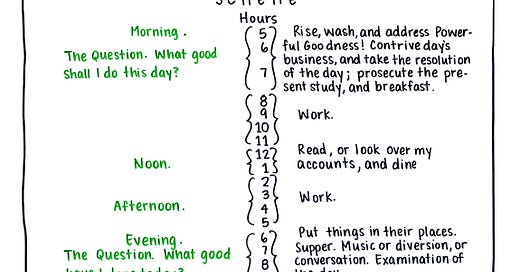 Hours
Morning.
The Question. What good
shall I do this day?
5
6
7
Rise, wash, and address Power-
ful Goodness! Contrive day's
business, and take the resolution
of the day; prosecute the pre-
sent study, and breakfast.
8
9
10
11
Work.
Noon.
12
1
Read, or look over my
accounts, and dine
Afternoon.
2
3
4
5
Work.
Evening.
The Question. What good
6
7
8
Put things in their places.
Supper. Music or diversion, or
conversation. Examination of